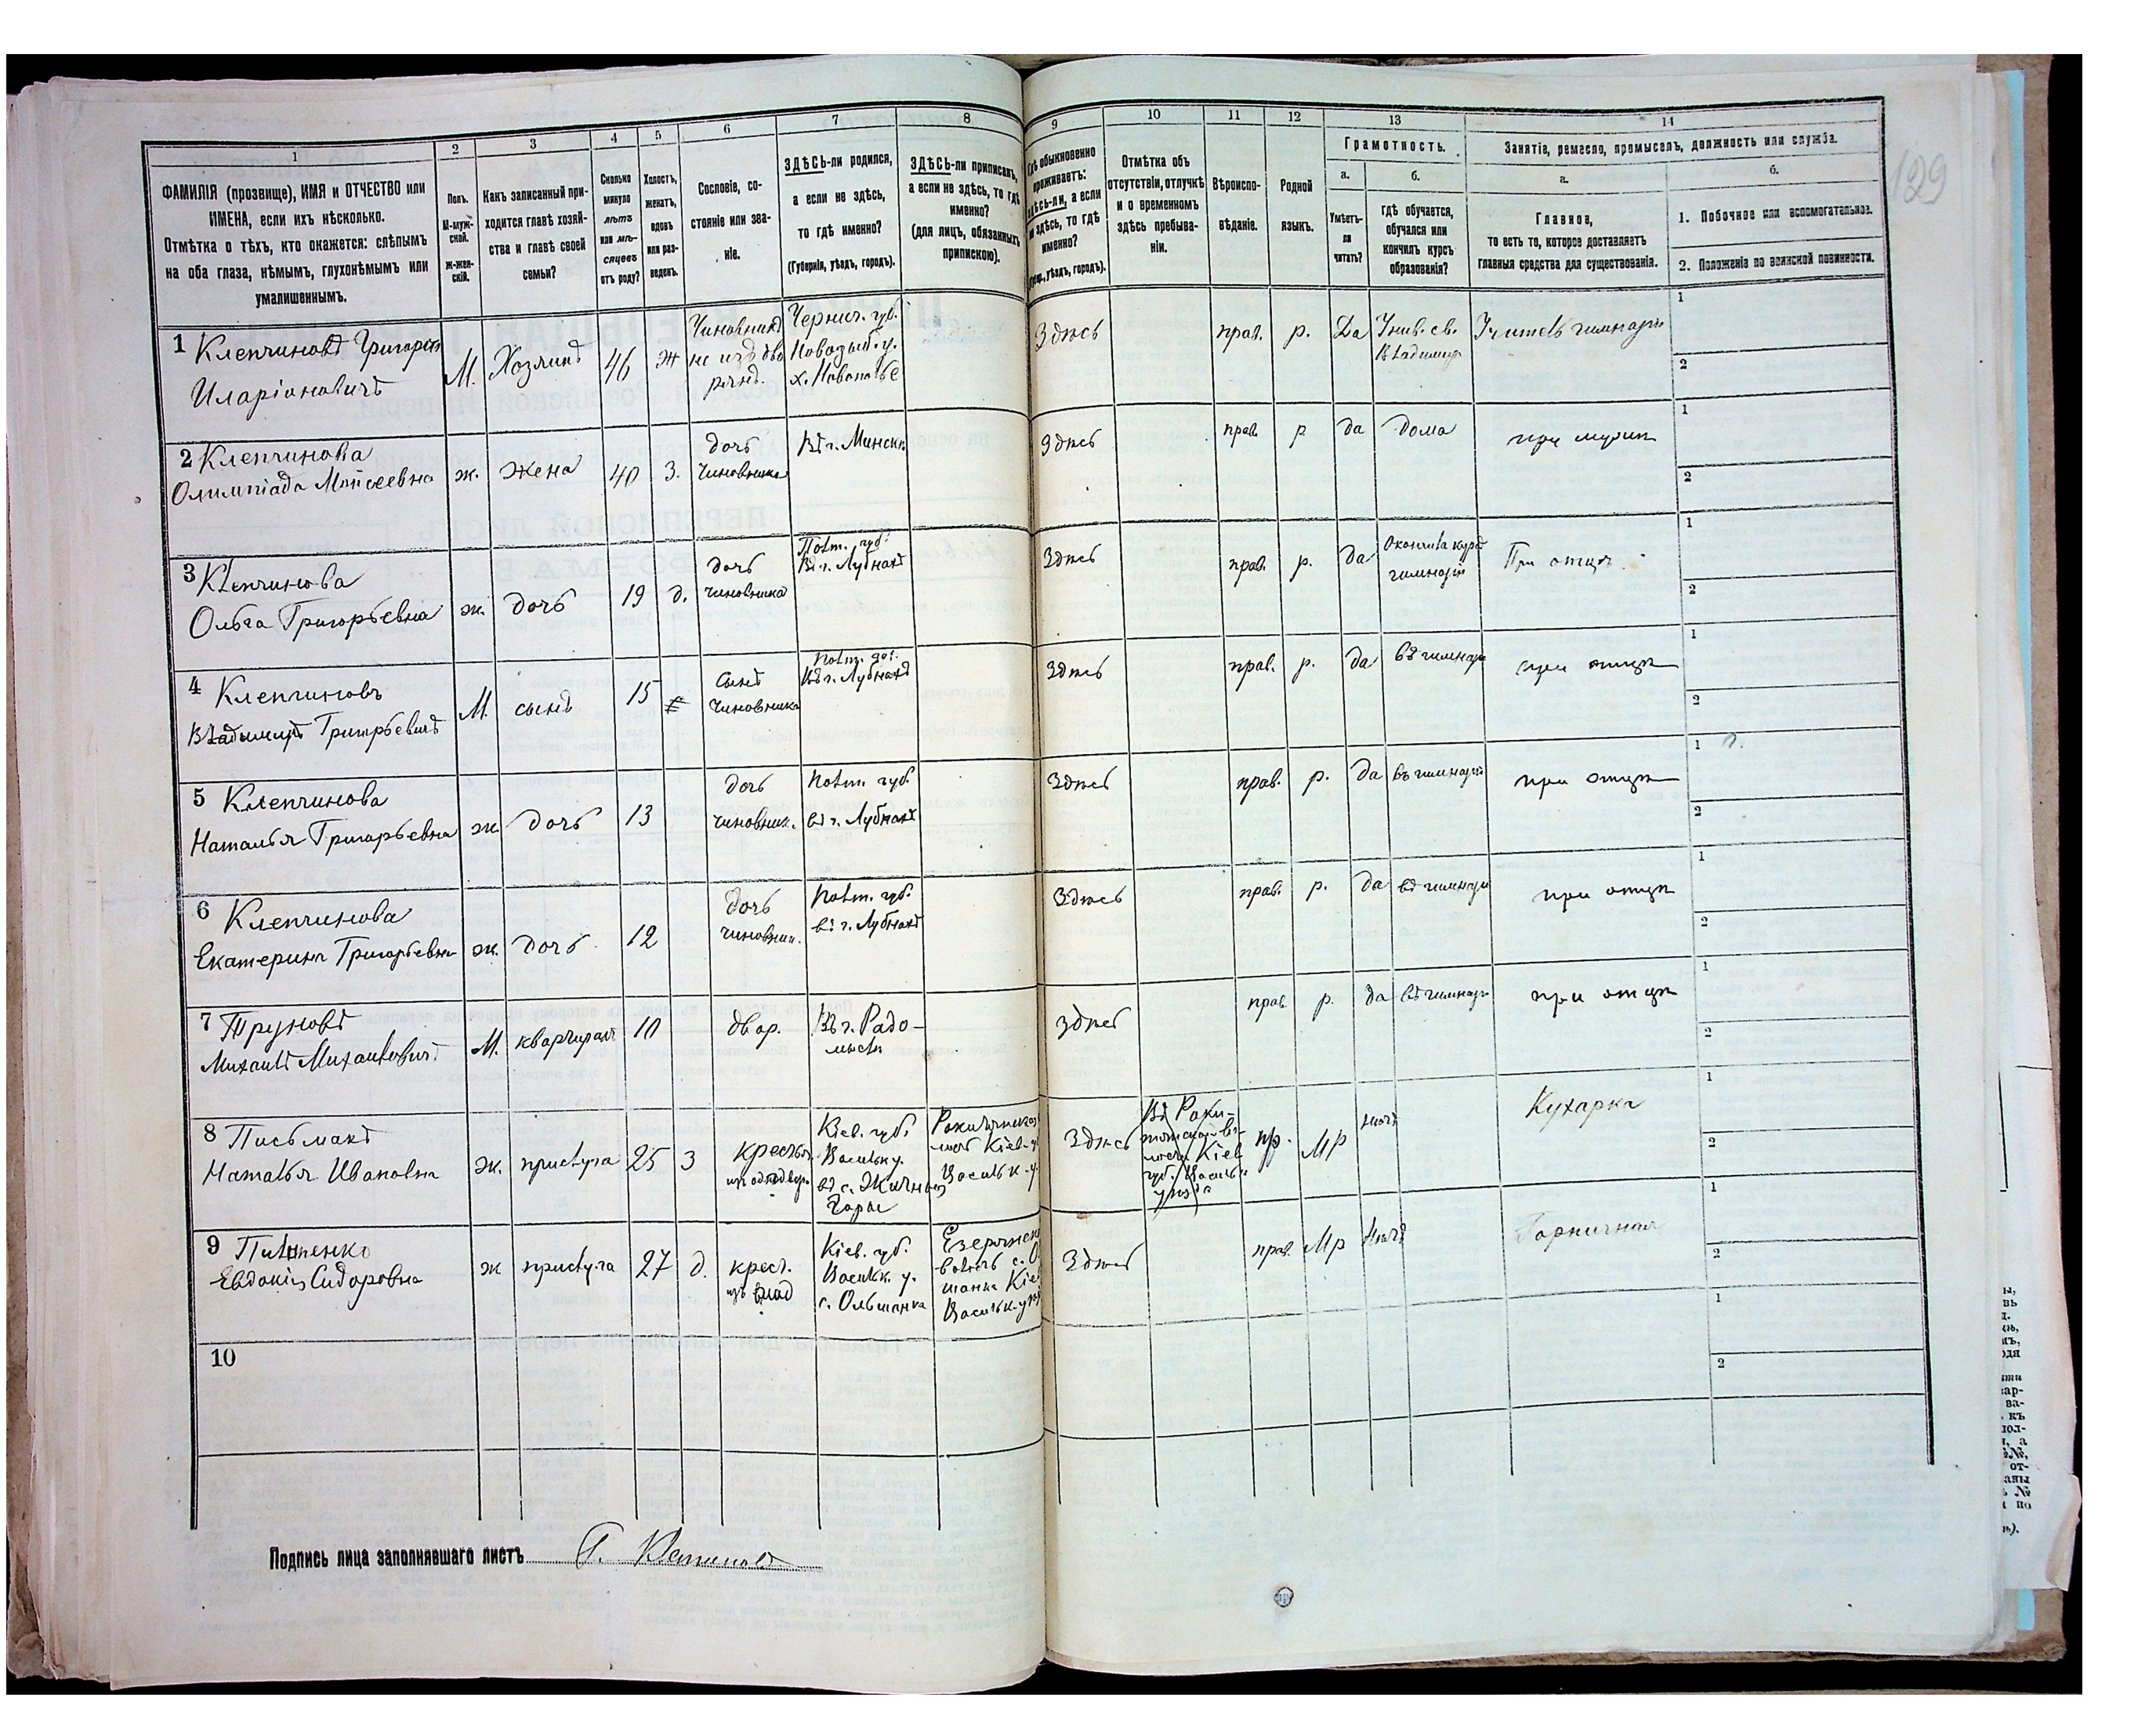 1 2 3 4 5 6 7 8 9 10 11 12 13 14
ФАМИЛІЯ (прозвище), ИМЯ и ОТЧЕСТВО или
ИМЕНА, если ихъ нѣсколько.
Отмѣтка о тѣхъ, кто окажется: слѣпымъ
на оба глаза, нѣмымъ, глухонѣмымъ или
умалишеннымъ.
Полъ.
М-муж-
ской.
Ж-жен-
скій.
Какъ записанный при-
ходится главѣ хозяй-
ства и главѣ своей
семьи?
Сколько
минуло
лѣтъ
или мѣ-
сяцевъ
отъ роду?
Холостъ,
женатъ,
вдовъ
или раз-
веденъ.
Сословіе, со-
стояніе или зва-
ніе.
ЗДѢСЬ-ли родился,
а если не здѣсь,
то гдѣ именно?
(Губернія, уѣздъ, городъ).
ЗДѢСЬ-ли приписанъ,
а если не здѣсь, то гдѣ
именно?
(для лицъ, обязанныхъ
припискою).
Гдѣ обыкновенно
проживаетъ:
здѣсь-ли, а если
не здѣсь, то гдѣ
именно?
уѣздъ, городъ).
Отмѣтка объ
отсутствіи, отлучкѣ
и о временномъ
здѣсь пребыва-
ніи.
Вѣроиспо-
вѣданіе.
Родной
языкъ.
Грамотность.
а.
Умѣетъ-
ли
читать?
б.
гдѣ обучается,
обучался или
кончилъ курсъ
образованія?
Занятіе, ремесло, промыселъ, должность или служба.
а.
Главное,
то есть то, которое доставляетъ
главныя средства для существованія.
б.
1. Побочное или вспомогательное.
2. Положеніе по воинской повинности.
129
1 Клепчиновъ Григорій
Иларіоновичъ
М. Хозяинъ 46 Ж
Чиновникъ
не изъ дво
рянъ.
Чернич. губ.
Новозыб. у.
х. Новополье
Здѣсь прав. р. Да
Унив. св.
Владимир
Учитель гимназіи
1
2
2 Клепчинова
Олимпіада Мойсеевна
ж. жена 40 З.
дочь
чиновника
Въ г. Минскѣ
Здѣсь прав. р. да дома при мужѣ
1
2
3 Клепчинова
Ольга Григорьевна
ж. дочь 19 д.
дочь
чиновника
Полт. губ.
Въ г. Лубнахъ
Здѣсь прав. р. да
Окончила курсъ
гимназіи
При отцѣ.
1
2
4 Клепчиновъ
Владимиръ Григорьевичъ
М. сынъ 15
сынъ
чиновника
Полт. губ.
Въ г. Лубнахъ
Здѣсь прав. р. да въ гимназіи при отцѣ
1
2
5 Клепчинова
Наталья Григорьевна
ж. дочь 13
дочь
чиновник.
Полт. губ.
въ г. Лубнахъ
Здѣсь прав. р. да въ гимназіи при отцѣ
1
2
6 Клепчинова
Екатерина Григорьевна
ж. дочь 12
дочь
чиновник.
Полт. губ.
въ г. Лубнахъ
Здѣсь прав. р. да въ гимназіи при отцѣ
1
2
7 Труновъ
Михаилъ Михайловичъ
М. квартирант 10 двор.
Въ г. Радо-
мысли
Здѣсь прав. р. да въ гимназіи при отцѣ
1
2
8 Письмакъ
Наталья Ивановна
ж. прислуга 25 З
Кіев. губ.
Васильк у.
въ с.
Кіев.
Васильк. у
Здѣсь
Въ Раки-
Кіев
губ. Василь
пр. Мр
Кухарка
1
2
9
Евдокія Сидоровна
ж прислуга 27 д.
крест.
изъ
Кіев. губ.
Васильк. у.
с. Ольшанка
шанка Кіев
Васильк. у
Здѣсь прав. Мр Горничная
1
2
10
1
2
Подпись лица заполнявшаго листъ Г. Клепчиновъ